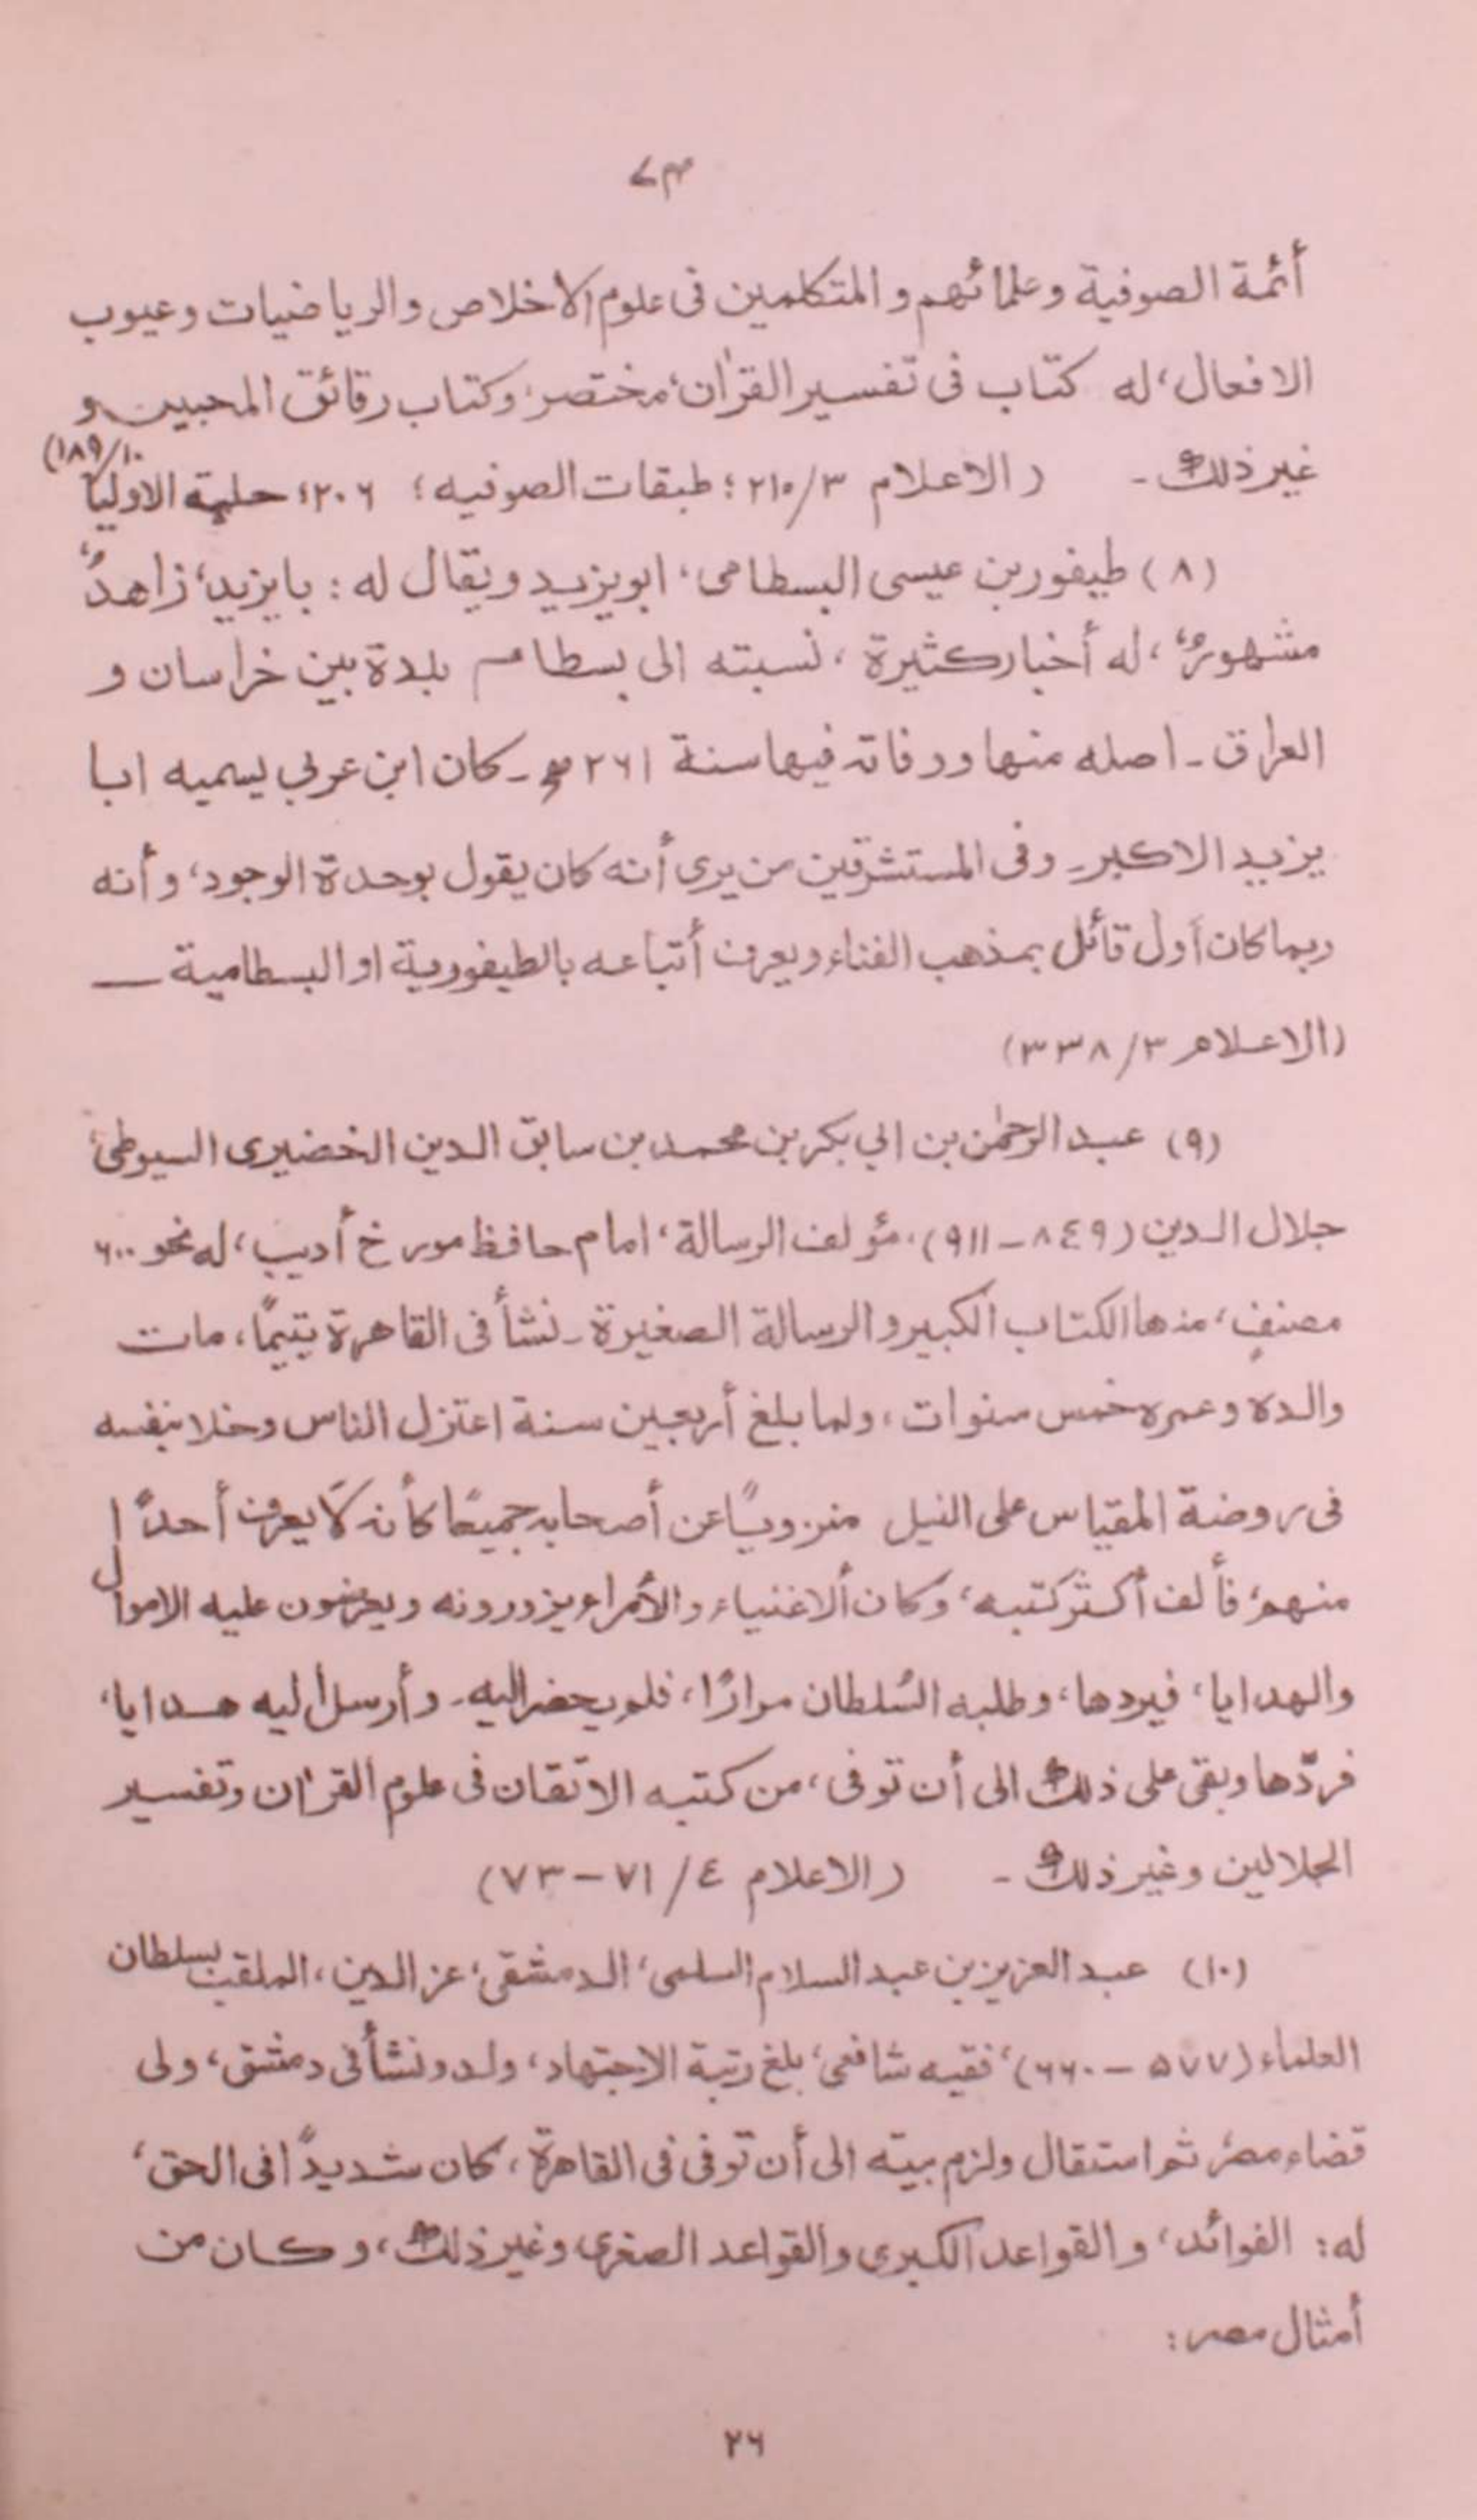 ٧٣
أئمة الصوفية وعلمائهم و المتكلمين فى علوم الاخلاص والرياضيات وعيوب
الافعال، له كتاب فى تفسير القرآن، مختصر، وكتاب رقائق المحبين و
غير ذلك - (الاعلام ٣/٢١٥؛ طبقات الصوفيه؛ ٢٠٦؛ حلية الاوليا ١٠/١٨٩)
(٨) طيفور بن عيسى البسطامى، ابو يزيد ويقال له : بايزيد، زاهدٌ،
مشهورٌ، له أخبار كثيرة ، نسبته الى بسطام بلدة بين خراسان و
العراق - اصله منها ووفاته فيها سنة ٢٦١ ھ - كان ابن عربي يسميه ابا
يزيد الاكبر - وفى المستشرقين من يرى أنه كان يقول بوحدة الوجود، وأنه
ربما كان أول قائل بمذهب الفناء ويعرف أتباعه بالطيفورية او البسطامية —
(الاعلام ٣/٣٣٨)
(٩) عبد الرحمٰن بن ابي بكر بن محمد بن سابق الدين الخضيرى السيوطى،
جلال الدين (٨٤٩ - ٩١١)، مؤلف الرسالة، امام حافظ مورخ أديب، له نحو ٦٠٠
مصنفٍ، منها الكتاب الكبير و الرسالة الصغيرة - نشأ فى القاهرة يتيمًا، مات
والده وعمره خمس سنوات ، ولما بلغ أربعين سنة اعتزل الناس وخلا بنفسه
فى روضة المقياس على النيل منزويًا عن أصحابه جميعًا كأنه لا يعرف أحدًا
منهم، فألف أكثر كتبه، وكان ألاغنياء والأمراء يزورونه ويعرضون عليه الاموال
والهدايا، فيردها، وطلبه السُلطان مرارًا، فلم يحضر اليه - وأرسل اليه هدايا،
فردّها وبقى على ذلك الى أن توفى، من كتبه الاتقان فى علوم القرآن وتفسير
الجلالين وغير ذلك - (الاعلام ٤/ ٧١ - ٧٣)
(١٠) عبد العزيز بن عبد السلام السلمى، الدمشقى، عز الدين، الملقب بسلطان
العلماء (٥٧٧ - ٦٦٠)، فقيه شافعى، بلغ رتبة الاجتهاد، ولد ونشأ فى دمشق، ولى
قضاء مصر، ثم استقال ولزم بيته الى أن توفى فى القاهرة، كان شديدًا فى الحق،
له: الفوائد، و القواعد الكبرى والقواعد الصغرى وغير ذلك، و كان من
أمثال مصر :
٢٦